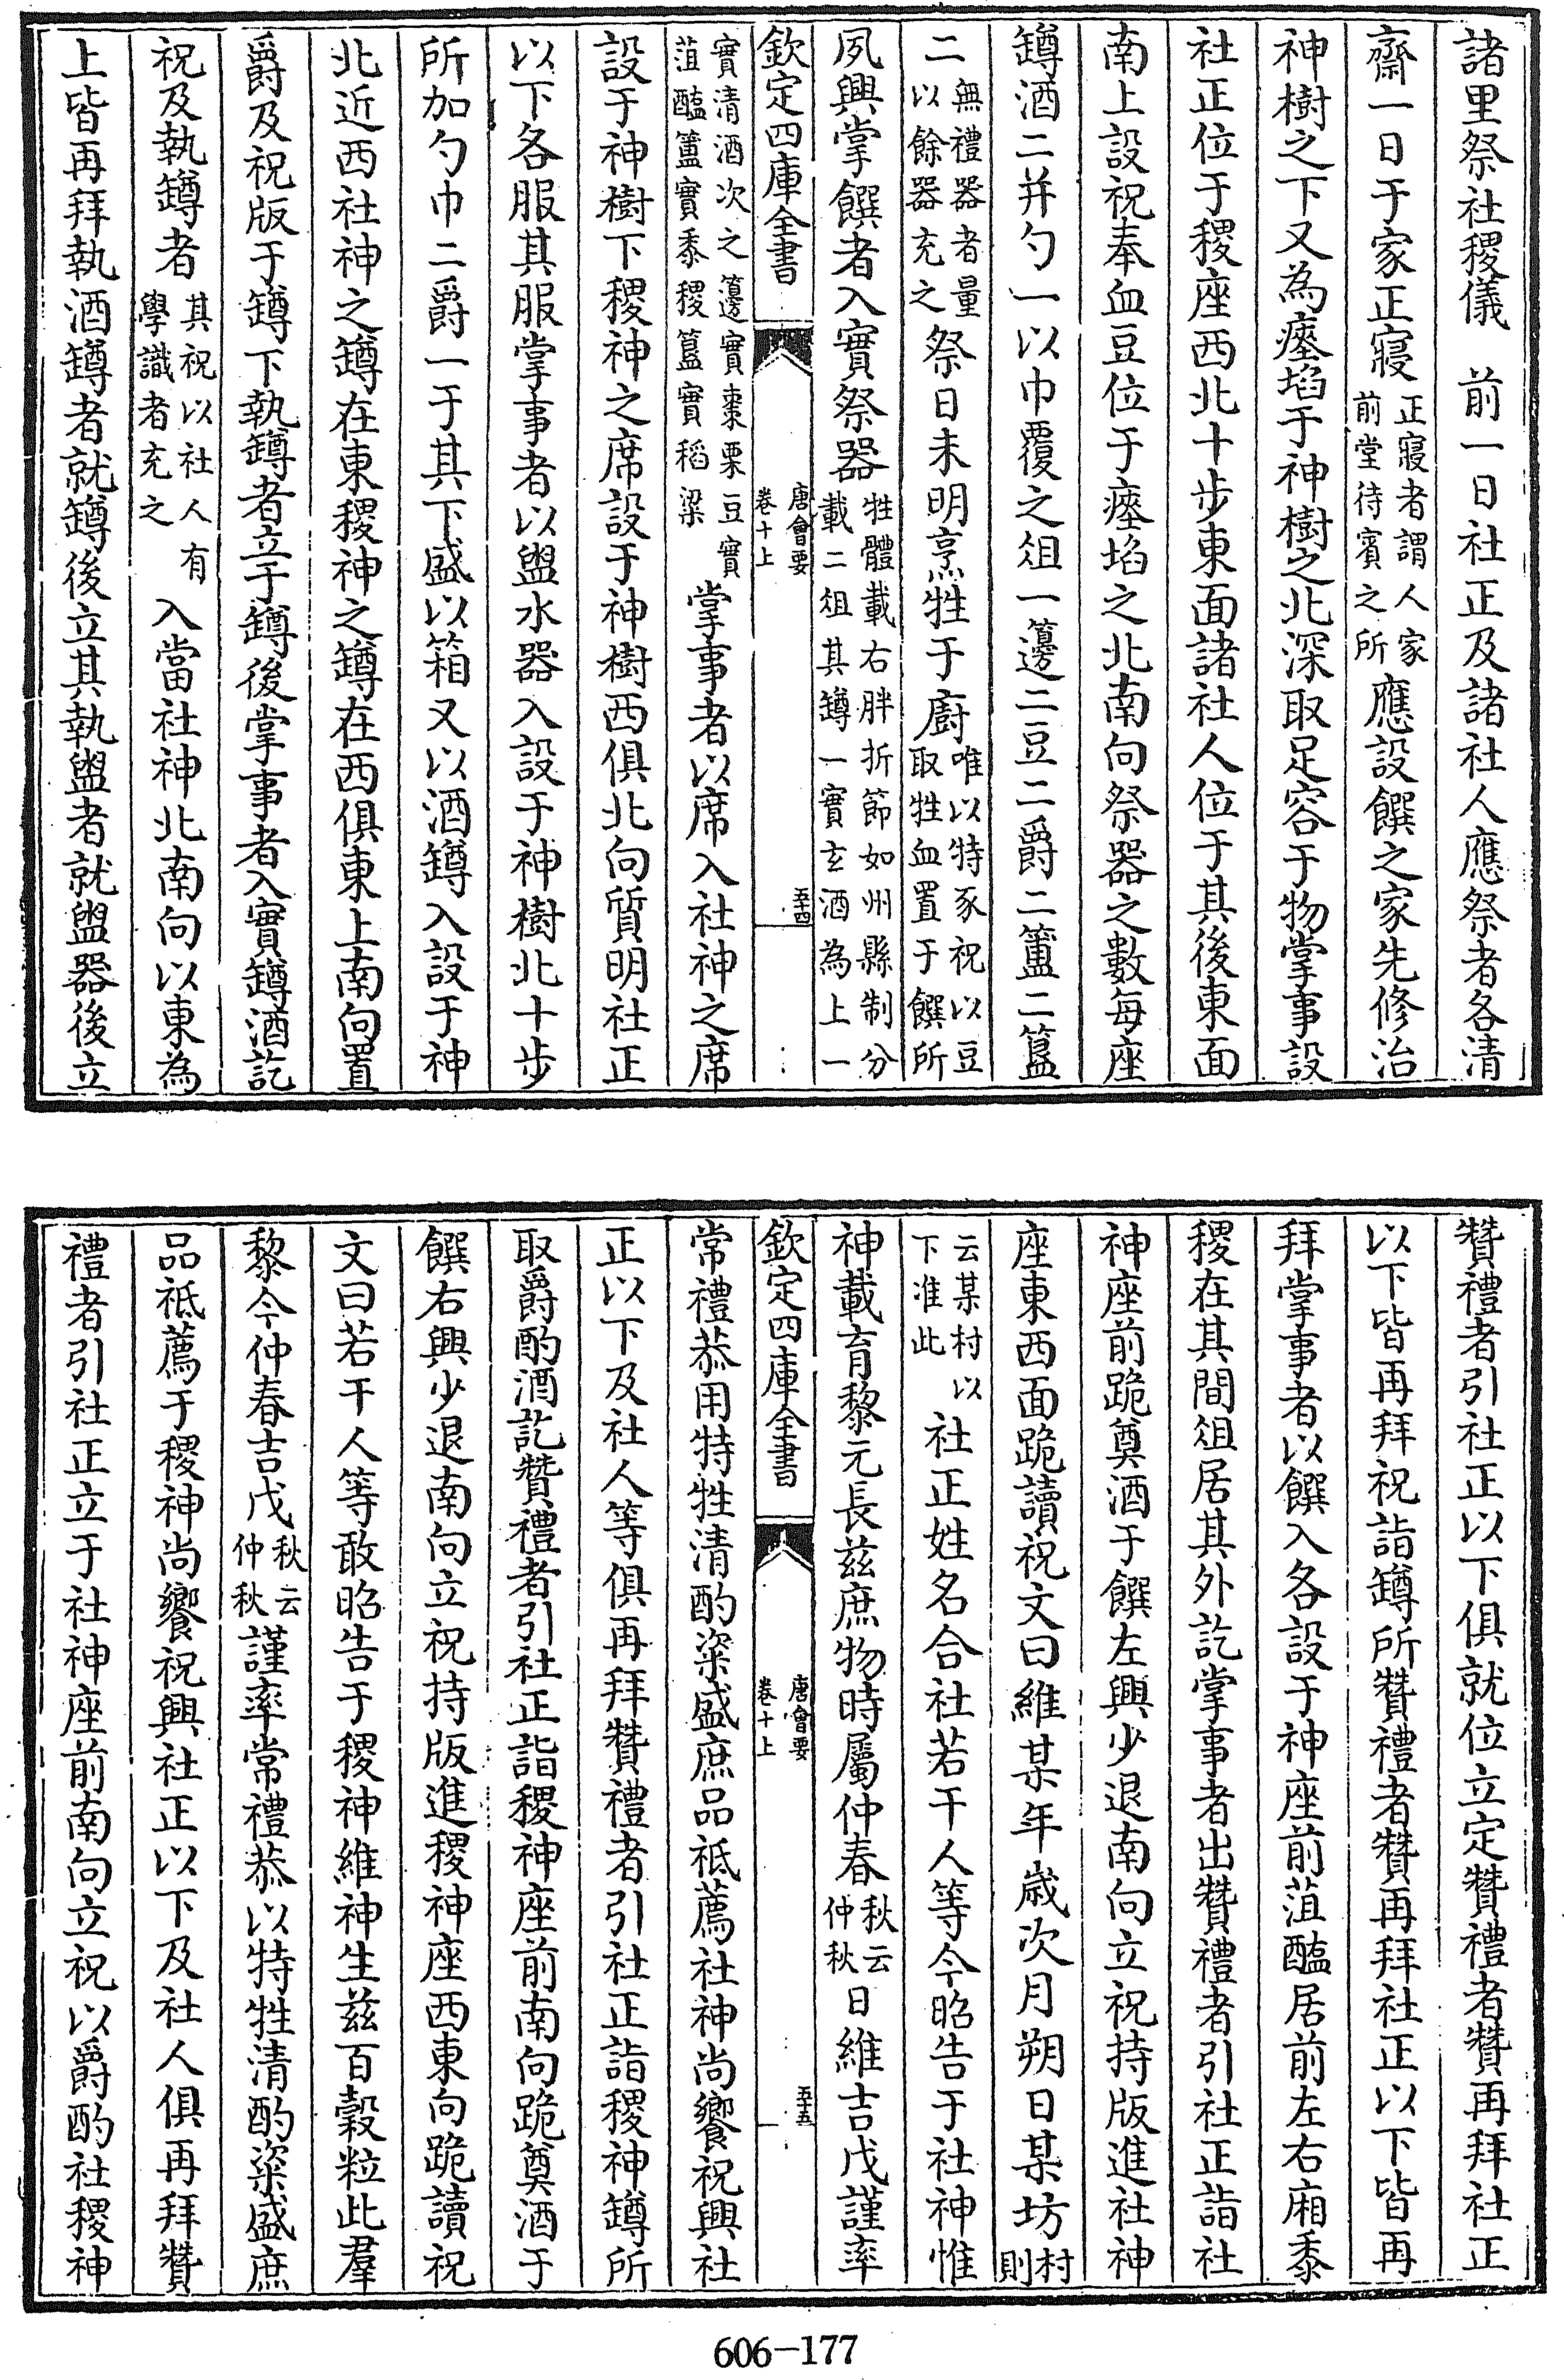 諸里祭社稷儀　前一日社正及諸社人應祭者各清
齋一日于家正寢正寢者謂人家前堂待賓之所應設饌之家先修治
神樹之下又為瘞埳于神樹之北深取足容于物掌事設
社正位于稷座西北十步東面諸社人位于其後東面
南上設祝奉血豆位于瘞埳之北南向祭器之數每座
罇酒二并勺一以巾覆之俎一籩二豆二爵二簠二簋
二無禮器者量以餘器充之祭日未明烹牲于廚唯以特豕祝以豆取牲血置于饌所
夙興掌饌者入實祭器牲體載右胖折節如州縣制分載二俎其罇一實玄酒為上一
欽定四庫全書　唐會要卷十上　五十四
實清酒次之籩實棗栗豆實菹醢簠實黍稷簋實稻粱掌事者以席入社神之席
設于神樹下稷神之席設于神樹西俱北向質明社正
以下各服其服掌事者以盥水器入設于神樹北十步
所加勺巾二爵一于其下盛以箱又以酒罇入設于神
北近西社神之罇在東稷神之罇在西俱東上南向置
爵及祝版于罇下執罇者立于罇後掌事者入實罇酒訖
祝及執罇者其祝以社人有學識者充之入當社神北南向以東為
上皆再拜執酒罇者就罇後立其執盥者就盥器後立
贊禮者引社正以下俱就位立定贊禮者贊再拜社正
以下皆再拜祝詣罇所贊禮者贊再拜社正以下皆再
拜掌事者以饌入各設于神座前菹醢居前左右廂黍
稷在其間俎居其外訖掌事者出贊禮者引社正詣社
神座前跪奠酒于饌左興少退南向立祝持版進社神
座東西面跪讀祝文曰維某年歲次月朔日某坊村則
云某村以下准此社正姓名合社若干人等今昭告于社神惟
神載育黎元長茲庶物時屬仲春秋云仲秋日維吉戊謹率
欽定四庫全書　唐會要卷十上　五十五
常禮恭用特牲清酌粢盛庶品祗薦社神尚饗祝興社
正以下及社人等俱再拜贊禮者引社正詣稷神罇所
取爵酌酒訖贊禮者引社正詣稷神座前南向跪奠酒于
饌右興少退南向立祝持版進稷神座西東向跪讀祝
文曰若干人等敢昭告于稷神維神生茲百穀粒此羣
黎今仲春吉戊秋云仲秋謹率常禮恭以特牲清酌粢盛庶
品祗薦于稷神尚饗祝興社正以下及社人俱再拜贊
禮者引社正立于社神座前南向立祝以爵酌社稷神
606-177